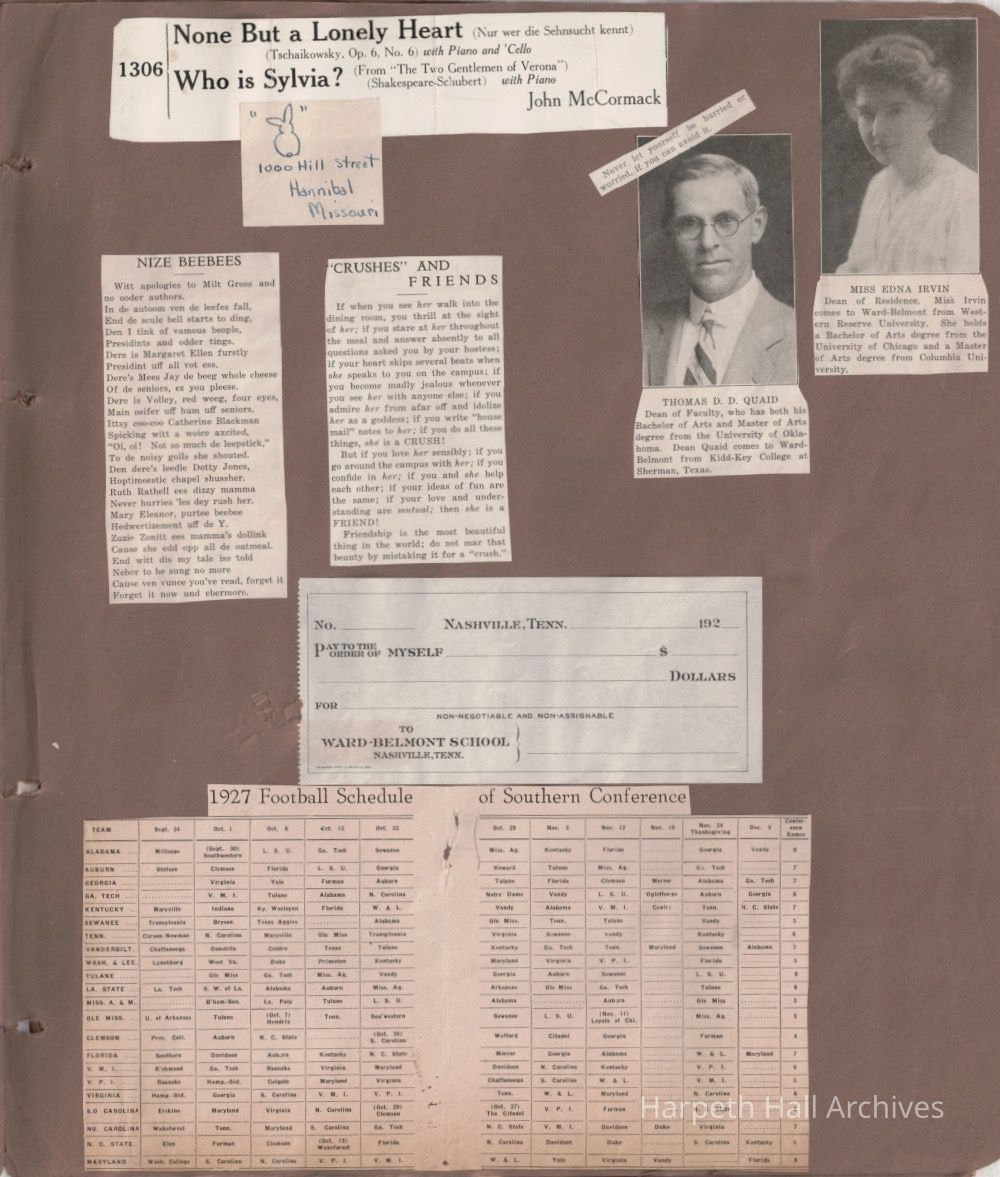 None But a Lonely Heart (Nur wer die Sehnsucht kennt)
(Tschaikowsky, Op. 6, No. 6) with Piano and 'Cello
1306
Who is Sylvia? (From "The Two Gentlemen of Verona")
(Shakespeare-Schubert) with Piano
John McCormack
" "
1000 Hill Street
Hannibal
Missouri
Never let yourself be hurried or
worried, if you can avoid it.
MISS EDNA IRVIN
Dean of Residence. Miss Irvin
comes to Ward-Belmont from West-
ern Reserve University. She holds
a Bachelor of Arts degree from the
University of Chicago and a Master
of Arts degree from Columbia Uni-
versity.
THOMAS D. D. QUAID
Dean of Faculty, who has both his
Bachelor of Arts and Master of Arts
degree from the University of Okla-
homa. Dean Quaid comes to Ward-
Belmont from Kidd-Key College at
Sherman, Texas.
NIZE BEEBEES
Witt apologies to Milt Gross and
no ooder authors.
In de autoom ven de leefes fall,
End de scule bell starts to ding,
Den I tink of vamous beople,
Presidints and odder tings.
Dere is Margaret Ellen furstly
Presidint uff all vot ess.
Dere's Mees Jay de beeg whole cheese
Of de seniors, ez you pleese.
Dere is Volley, red weeg, four eyes,
Main osifer uff hum uff seniors.
Ittsy coo-coo Catherine Blackman
Spicking witt a woice axcited,
"Oi, oi! Not so much de leepstick,"
To de noisy goils she shouted.
Den dere's leedle Dotty Jones,
Hoptimeestic chapel shussher.
Ruth Rathell ees dizzy mamma
Never hurries 'les dey rush her.
Mary Eleanor, purtee beebee
Hedwertizement uff de Y.
Zuzie Zonitt ees mamma's dollink
Cause she edd opp all de oatmeal.
End witt dis my tale iss told
Neber to be sung no more
Cause ven vunce you've read, forget it
Forget it now und ebermore.
"CRUSHES" AND
FRIENDS
If when you see her walk into the
dining room, you thrill at the sight
of her; if you stare at her throughout
the meal and answer absently to all
questions asked you by your hostess;
if your heart skips several beats when
she speaks to you on the campus; if
you become madly jealous whenever
you see her with anyone else; if you
admire her from afar off and idolize
her as a goddess; if you write "house
mail" notes to her; if you do all these
things, she is a CRUSH!
But if you love her sensibly; if you
go around the campus with her; if you
confide in her; if you and she help
each other; if your ideas of fun are
the same; if your love and under-
standing are mutual; then she is a
FRIEND!
Friendship is the most beautiful
thing in the world; do not mar that
beauty by mistaking it for a "crush."
No. NASHVILLE, TENN. 192
PAY TO THE ORDER OF MYSELF $
DOLLARS
FOR
NON-NEGOTIABLE AND NON-ASSIGNABLE
TO
WARD-BELMONT SCHOOL
NASHVILLE, TENN.
1927 Football Schedule of Southern Conference
TEAM Sept. 24 Oct. 1 Oct. 8 Oct. 15 Oct. 22 Oct. 29 Nov. 5 Nov. 12 Nov. 19 Nov. 24 Thanksgiving Dec. 3 Confer-ence Games
ALABAMA Millsaps (Sept. 30) Southwestern L. S. U. Ga. Tech Sewanee Miss. Ag. Kentucky Florida Georgia Vandy 8
AUBURN Stetson Clemson Florida L. S. U. Georgia Howard Tulane Miss. Ag. Ga. Tech 7
GEORGIA Virginia Yale Furman Auburn Tulane Florida Clemson Mercer Alabama Ga. Tech 7
GA. TECH V. M. I. Tulane Alabama N. Carolina Notre Dame Vandy L. S. U. Oglethorpe Auburn Georgia 8
KENTUCKY Maryville Indiana Ky. Wesleyan Florida W. & L. Vandy Alabama V. M. I. Centre Tenn. N. C. State 7
SEWANEE Transylvania Bryson Texas Aggies Alabama Ole Miss. Tenn. Tulane Vandy 5
TENN. Carson-Newman N. Carolina Maryville Ole Miss Transylvania Virginia Sewanee Vandy Kentucky 6
VANDERBILT Chattanooga Ouachita Centre Texas Tulane Kentucky Ga. Tech Tenn. Maryland Sewanee Alabama 7
WASH. & LEE Lynchburg West Va. Duke Princeton Kentucky Maryland Virginia V. P. I. Florida 5
TULANE Ole Miss Ga. Tech Miss. Ag. Vandy Georgia Auburn Sewanee L. S. U. 8
LA. STATE La. Tech S. W. of La. Alabama Auburn Miss. Ag. Arkansas Ole Miss Ga. Tech Tulane 6
MISS. A. & M. B'ham-Sou. La. Poly Tulane L. S. U. Alabama Auburn Ole Miss 5
OLE MISS. U. of Arkansas Tulane (Oct. 7) Hendrix Tenn. Sou'western Sewanee L. S. U. (Nov. 11) Loyola of Chi. Miss. Ag. 5
CLEMSON Pres. Coll. Auburn N. C. State (Oct. 20) S. Carolina Wofford Citadel Georgia Furman 4
FLORIDA Southern Davidson Auburn Kentucky N. C. State Mercer Georgia Alabama W. & L. Maryland 7
V. M. I. Richmond Ga. Tech Roanoke Virginia Maryland Davidson N. Carolina Kentucky V. P. I. 6
V. P. I. Roanoke Hamp.-Sid. Colgate Maryland Virginia Chattanooga S. Carolina W. & L. V. M. I. 5
VIRGINIA Hamp.-Sid. Georgia S. Carolina V. M. I. V. P. I. Tenn. W. & L. Maryland N. Carolina
S.O CAROLINA Erskine Maryland Virginia N. Carolina (Oct. 20) Clemson (Oct. 27) The Citadel V. P. I. Furman
NO. CAROLINA Wakeforest Tenn. Maryland S. Carolina Ga. Tech N. C. State V. M. I. Davidson Duke Virginia 7
N. C. STATE Elon Furman Clemson (Oct. 13) Wakeforest Florida N. Carolina Davidson Duke S. Carolina Kentucky 5
MARYLAND Wash. College S. Carolina N. Carolina V. P. I. V. M. I. W. & L. Yale Virginia Vandy Florida 8
Harpeth Hall Archives